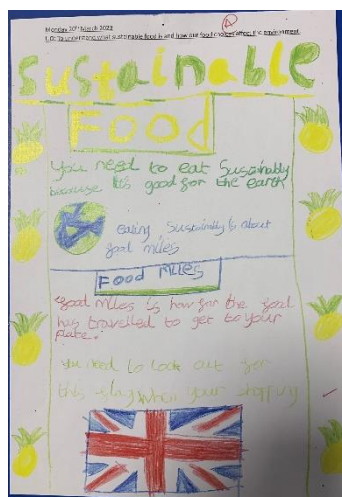 Monday 20th March 2023
L.O: To understand what sustainable food is and how our food choices affect the environment.
A
Sustainable
Food
You need to eat Sustainably
because it's good for the earth
eating Sustainably is about
food miles
Food Miles
Food miles is how far the food
has travelled to get to your
plate.
You need to look out for
this when your shopping